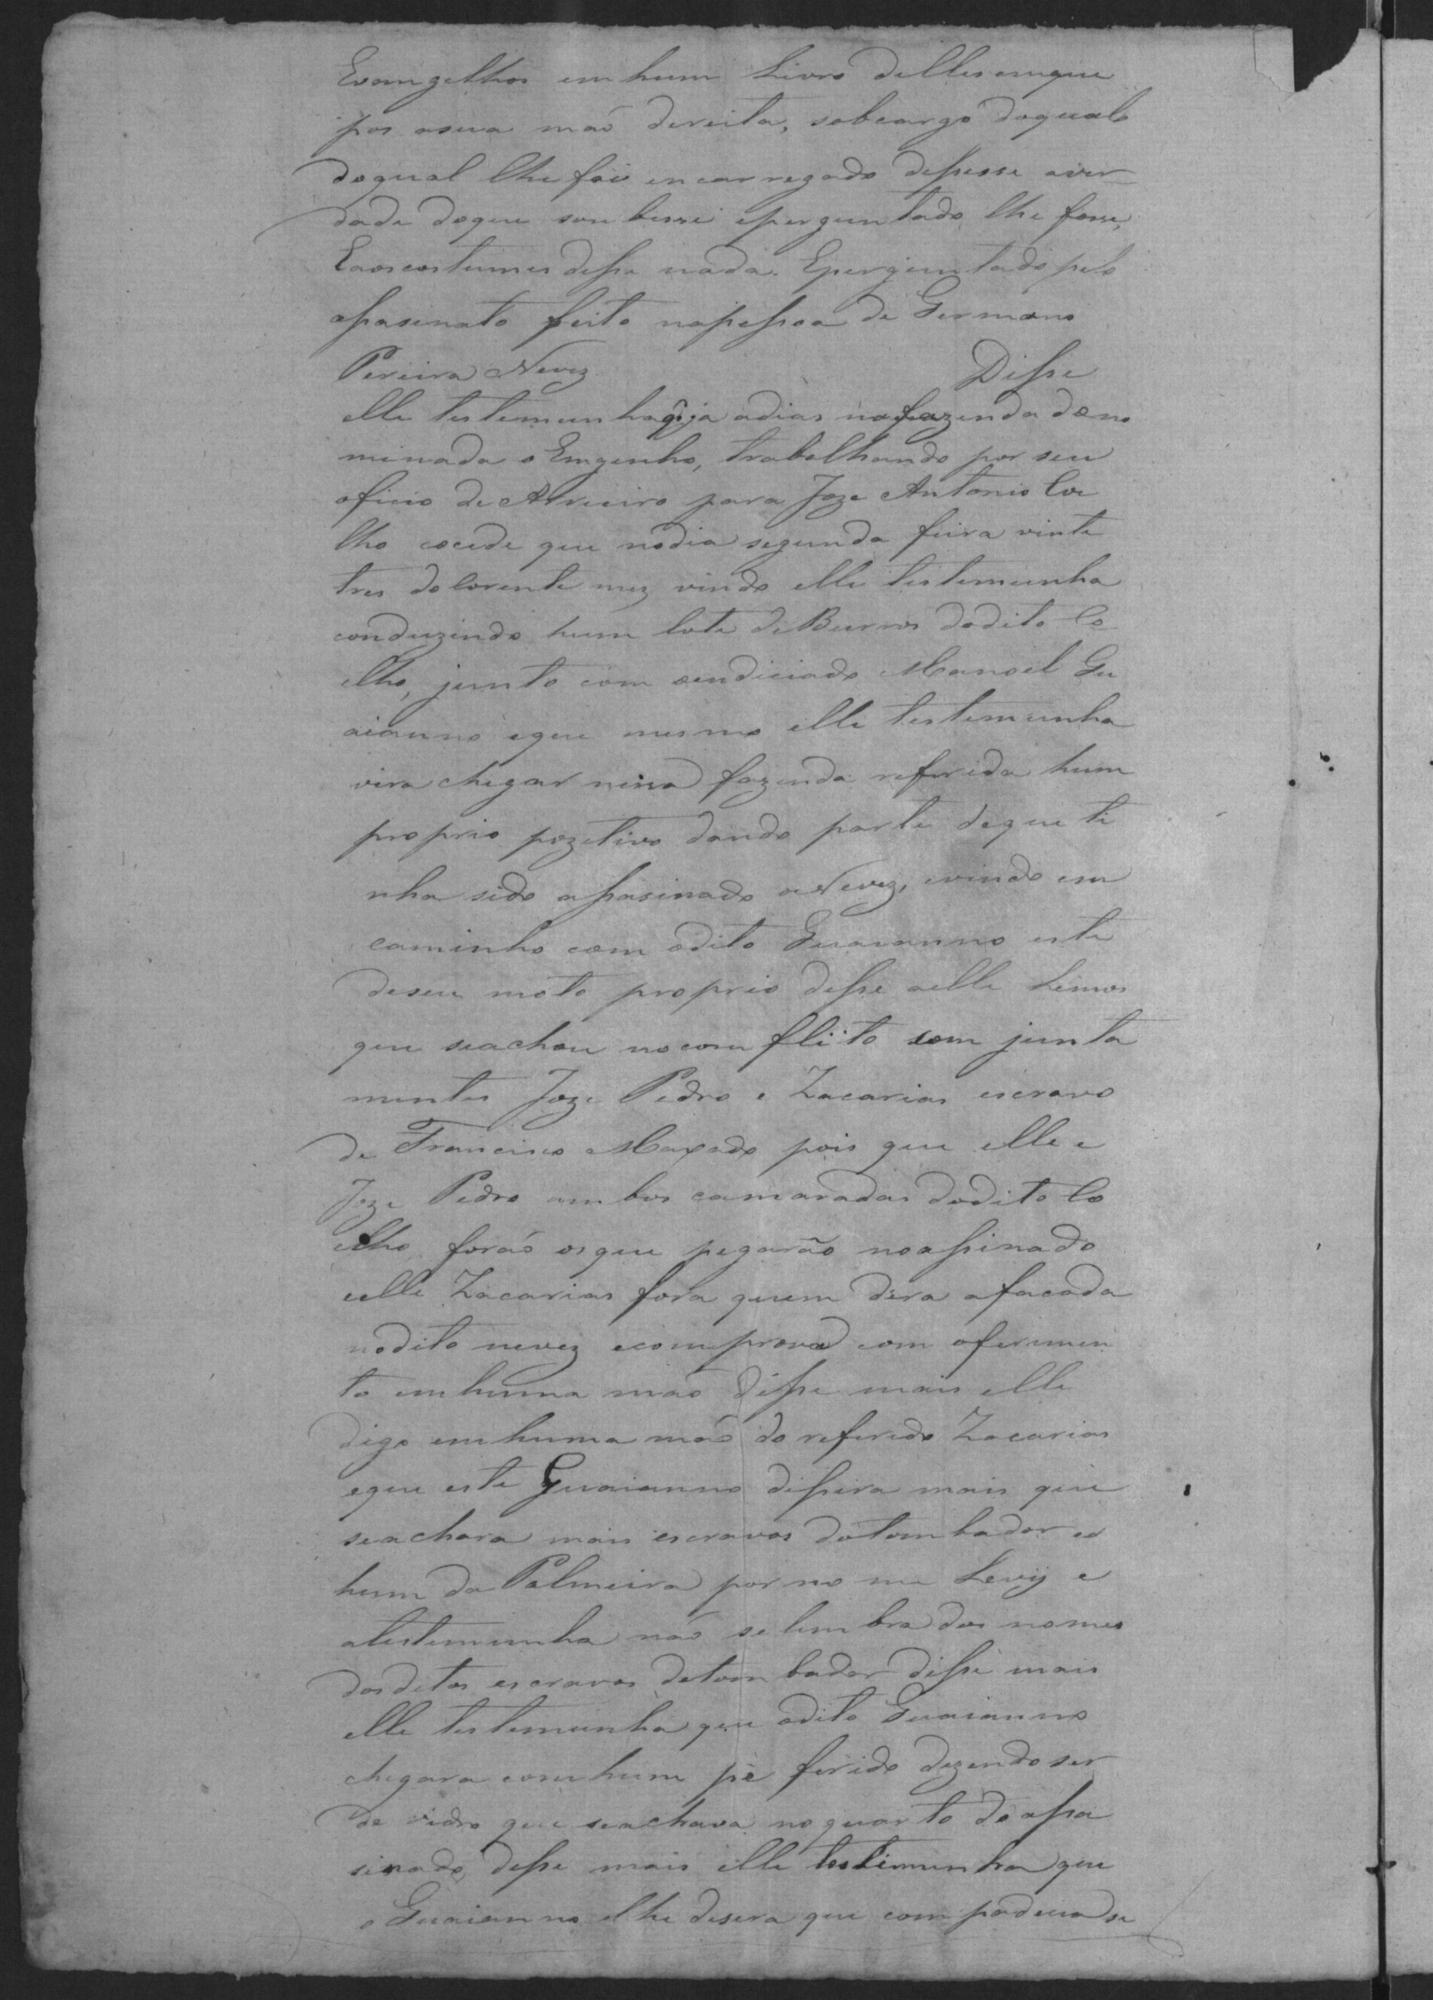 Evangelhos em hum Livro delles emque
pos asua mão direita, sobcargo doquale
doqual lhe foi encarregado dissesse aver
dade doque soubesse eperguntado lhe fosse,
Eaoscostumes disse nada. Eperguntado pelo
assasinato feito napessoa de Germano
Pereira Nevez Disse
elle testemunha q̃ ja adias nafazenda deno
minada o Emgenho, trabalhando por seu
oficio de Arrieiro para Joze Antonio Coe
lho socede que nodia segunda feira vinte
tres do Corente mez vindo elle testemunha
conduzindo hum lote de Burros dodito Co
elho, junto com oendiciado Manoel Gu
aianno eque mesmo elle testemunha
vira chegar nessa fazenda referida hum
proprio pozetivo dando parte deque ti
nha sido assasinado o Nevez, evindo em
caminho com odito Guaianno este
deseu moto proprio disse aelle Lemos
que seachou nocomfliito com junta
mentes Joze Pedro e Zacarias escravo
de Francisco Maxado pois que elle e
Joze Pedro ambos camaradas dodito Co
elho forão osque pegarão noassinado
eelle Zacarias fora quem dera afacada
nodito nevez ecomprova com oferimen
to emhuma mão disse mais elle
digo emhuma mão do referido Zacarias
eque este Guaianno dissera mais que
seachara mais escravos dotombador eo
hum da Palmeira por no me Levy e
atestemunha não se lembra dos nomes
dosditos escravos dotombador disse mais
elle testemunha que odito Guaianno
chegara comhum pé ferido dezendo ser
de vidro que seachava noquarto do assa
sinado, disse mais elle testemunha que
o Guaianno lhe disera que com